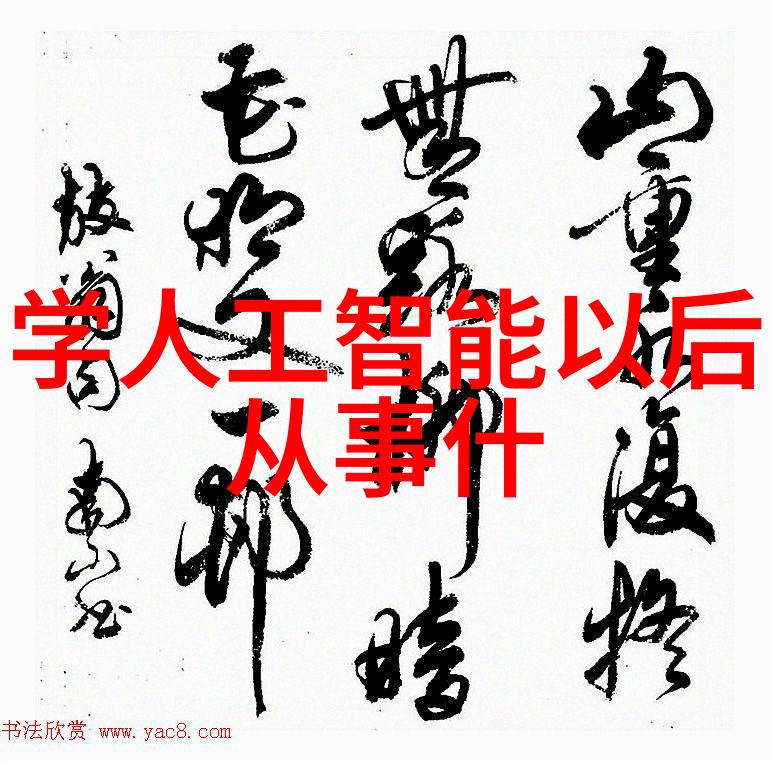 学人工智能以后
从事什
山重水復疑
無路柳暗
花明又一邨
放翁句
书法欣赏 www.yac8.com